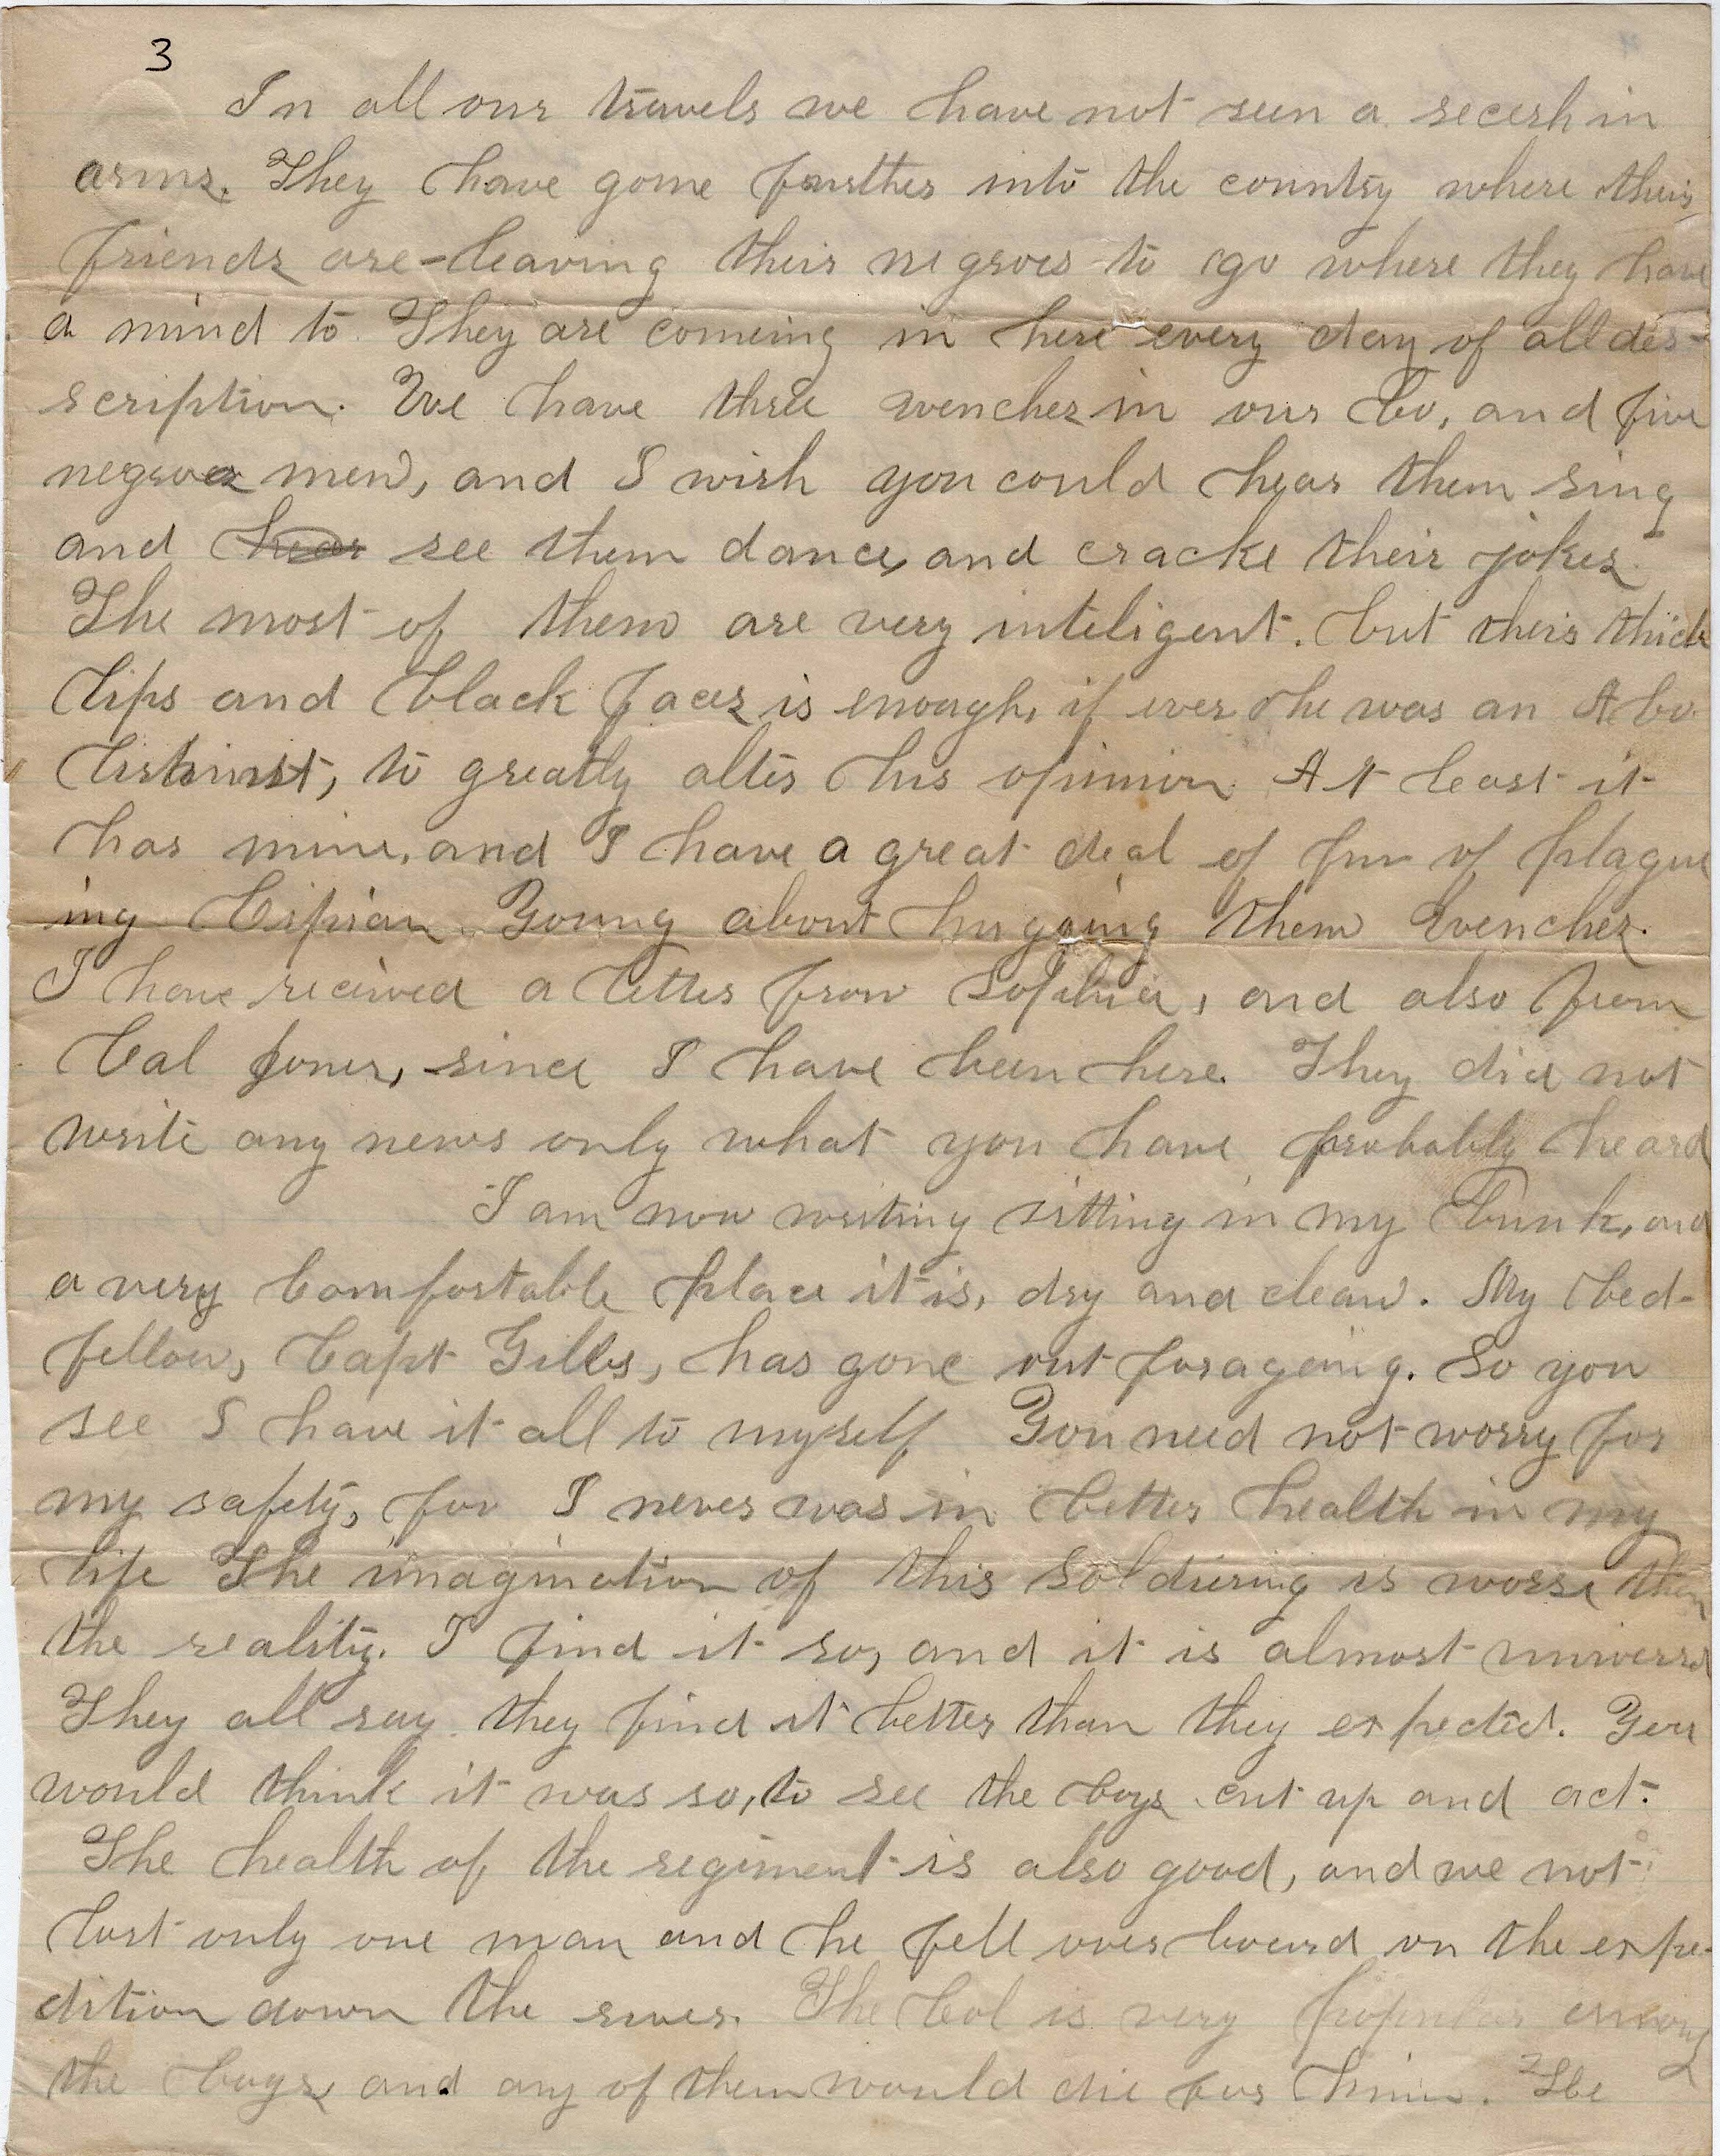 3
In all our travels we have not seen a secesh in
arms. They have gone farther into the country where their
friends are-leaving their negroes to go where they have
a mind to. They are comeing in here every day of all des-
scription. We have three wenches in our Co, and five
negroes men, and I wish you could hear them sing
and hear see them dance, and cracke their jokes.
The most of them are very inteligent. but their thick
lips and black faces is enough, if ever he was an Abo
litionist, to greatly alter his opinion. At least it
has mine, and I have a great deal of fun of plague
ing Ciprian Young about hugging them Wenches.
I have reciived a letter from Sophia, and also from
Cal Jones, since I have been here. They did not
write any news only what you have probably heard
I am now writing sitting in my bunk, and
a very Comfortable place it is, dry and clean. My bed-
fellow, Capt Gilles, has gone out forageing. So you
see I have it all to myself You need not worry for
my safety, for I never was in better health in my
life The imagination of this Soldiering is worse than
the reality. I find it so, and it is almost universal
They all say they find it better than they expected. You
would think it was so, to see the boys cut up and act.
The health of the regiment is also good, and we not
lost only one man and he fell over board on the expe-
dition down the river. The Col is very popular among
the boys, and any of them would die for him. The